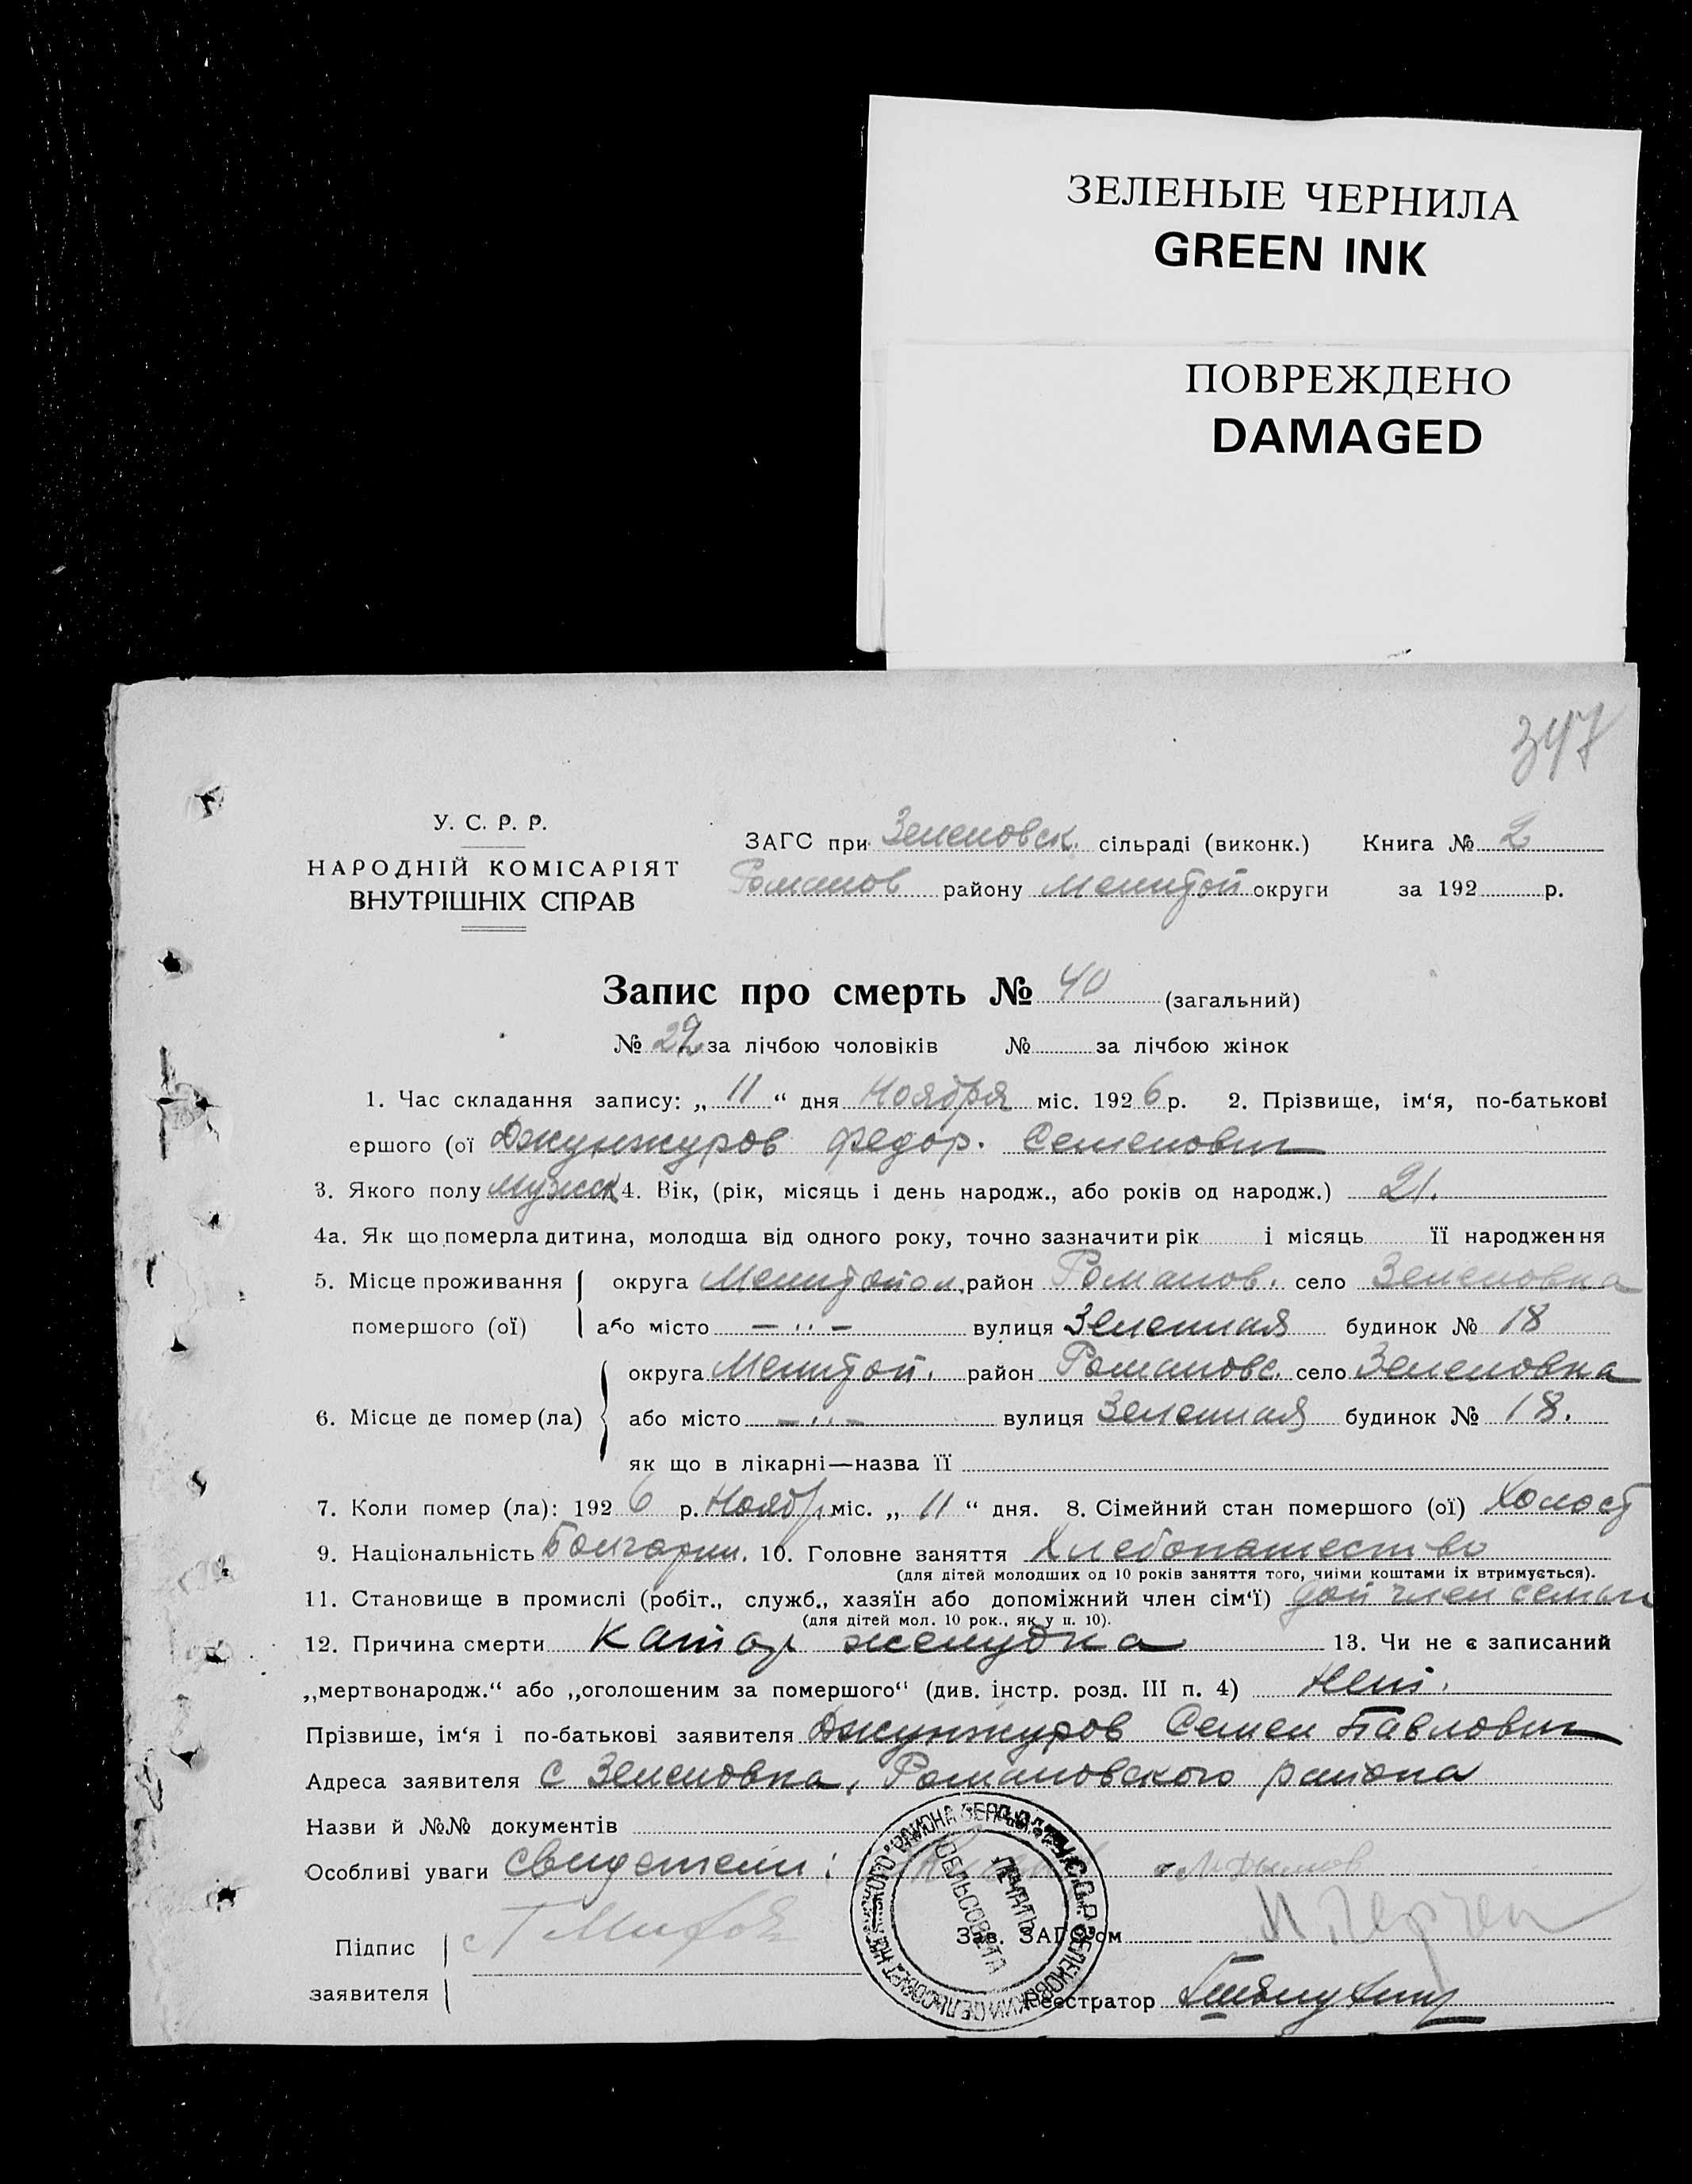 ЗЕЛЕНЫЕ ЧЕРНИЛА
GREEN INK
ПОВРЕЖДЕНО
DAMAGED
347
У. С. Р. Р.
НАРОДНІЙ КОМІСАРІЯТ
ВНУТРІШНІХ СПРАВ
ЗАГС при Зеленовск. сільраді (виконк.) Книга № 2
Романов району Мелитоп округи за 192 р.
Запис про смерть № 40 (загальний)
№ 29 за лічбою чоловіків № за лічбою жінок
1. Час складання запису: „ 11 “ дня Ноября міс. 1926 р. 2. Прізвище, ім‘я, по-батькові
ершого (ої Джунжуров Федор. Семенович
3. Якого полу мужск 4. Вік, (рік, місяць і день народж., або років од народж.) 21.
4а. Як що померла дитина, молодша від одного року, точно зазначити рік і місяць її народження
5. Місце проживання округа Мелитопол. район Романов. село Зеленовка
помершого (ої) або місто — „ — вулиця Зеленная будинок № 18
округа Мелитоп. район Романовс. село Зеленовка
6. Місце де помер (ла) або місто — „ — вулиця Зеленная будинок № 18.
як що в лікарні—назва її
7. Коли помер (ла): 1926 р. Ноябр. міс. „ 11 “ дня. 8. Сімейний стан помершого (ої) Холост
9. Національність Болгарин. 10. Головне заняття Хлебопашество
(для дітей молодших од 10 років заняття того, чиїми коштами їх втримується).
11. Становище в промислі (робіт., служб., хазяїн або допоміжний член сім‘ї) доп член семьи
(для дітей мол. 10 рок., як у п. 10).
12. Причина смерти Катар желудка 13. Чи не є записаний
„мертвонародж.“ або „оголошеним за помершого“ (див. інстр. розд. III п. 4) Нет.
Прізвише, ім‘я і по-батькові заявителя Джунжуров Семен Павлович
Адреса заявителя с Зеленовка, Романовского района
Назви й №№ документів
Особливі уваги свидетели:
ПЕЧАТЬ
СЕЛЬСОВЕТА
Підпис
Зав. ЗАГС‘ом
заявителя
Реєстратор